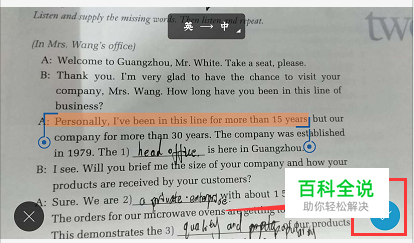 Listen and supply the missing words. Then listen and repeat.
two
英 → 中
(In Mrs. Wang's office)
A: Welcome to Guangzhou, Mr. White. Take a seat, please.
B: Thank you. I'm very glad to have the chance to visit your
company, Mrs. Wang. How long have you been in this line of
business?
A: Personally, I've been in this line for more than 15 years, but our
company for more than 30 years. The company was established
in 1979. The 1) head office is here in Guangzhou.
B: I see. Will you brief me the size of your company and how your
products are received by your customers?
A: Sure. We are 2) a private enterprise with about 1 5
The orders for our microwave ovens are getting to our products
This demonstrates the 3) quality and
百科全说
助你轻松解决